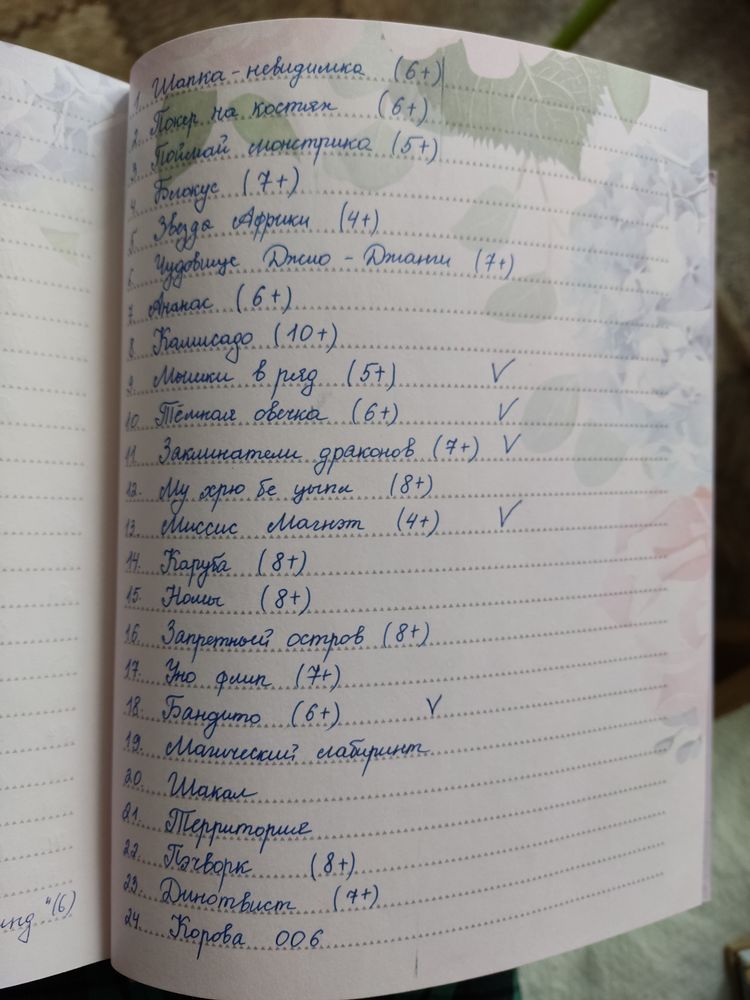 1. Шапка-невидимка (6+)
2. Покер на костях (6+)
3. Поймай монстрика (5+)
4. Блокус (7+)
5. Звезда Африки (4+)
6. Чудовищус Джио-Джанги (7+)
7. Ананас (6+)
8. Камисадо (10+)
9. Мышки в ряд (5+) ✓
10. Тёмная овечка (6+) ✓
11. Заклинатели драконов (7+) ✓
12. Му хрю бе цыпа (8+)
13. Миссис Магнэт (4+) ✓
14. Каруба (8+)
15. Номы (8+)
16. Запретный остров (8+)
17. Уно флип (7+)
18. Бандито (6+) ✓
19. Магический лабиринт
20. Шакал
21. Территория
22. Пэчворк (8+)
23. Динотвист (7+)
24. Корова 006
"(6)